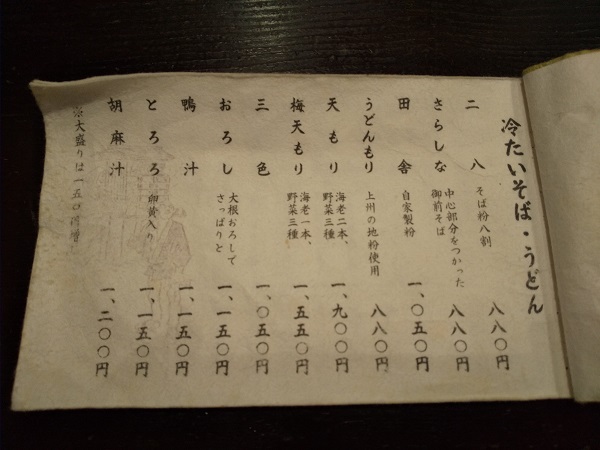 冷たいそば・うどん
二八 そば粉八割 八八〇円
さらしな 中心部分をつかった
御前そば 八八〇円
田舎 自家製粉 一、〇五〇円
うどんもり 上州の地粉使用 八八〇円
天もり 海老二本、
野菜三種 一、九〇〇円
梅天もり 海老一本、
野菜三種 一、五五〇円
三色 一、〇五〇円
おろし 大根おろしで
さっぱりと 一、一五〇円
鴨汁 一、一五〇円
とろろ 卵黄入り 一、一五〇円
胡麻汁 一、二〇〇円
大盛りは一五〇円増し